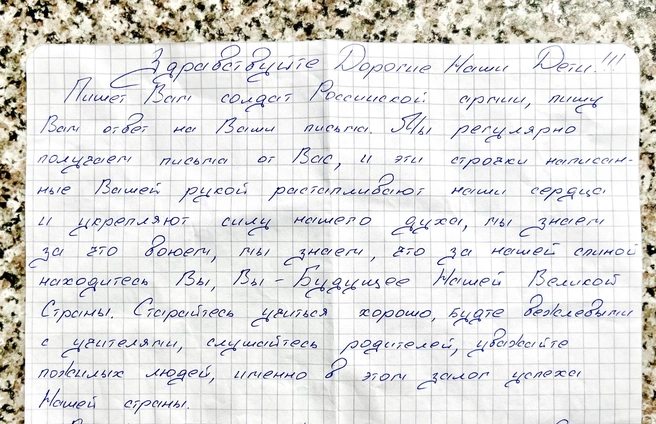 Здравствуйте Дорогие Наши Дети!!!
Пишет Вам солдат Российской армии, пишу
Вам ответ на Ваши письма. Мы регулярно
получаем письма от Вас, и эти строчки написан-
ные Вашей рукой растапливают наши сердца
и укрепляют силу нашего духа, мы знаем
за что воюем, мы знаем, что за нашей спиной
находитесь Вы, Вы - Будущее Нашей Великой
Страны. Старайтесь учиться хорошо, будте вежлевыми
с учителями, слушайтесь родителей, уважайте
пожилых людей, именно в этом залог успеха
Нашей страны.